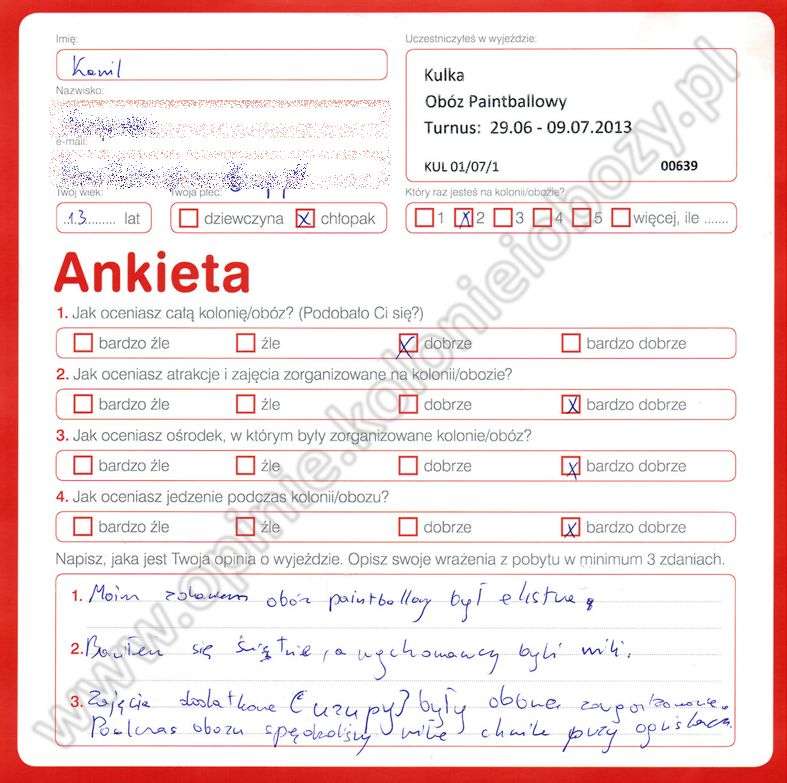 Imię:
Kamil
Uczestniczyłeś w wyjeździe:
Kulka
Obóz Paintballowy
Turnus: 29.06 - 09.07.2013
KUL 01/07/1 00639
Nazwisko:
e-mail:
Twój wiek: Twoja płeć: Który raz jesteś na kolonii/obozie?
13 lat dziewczyna X chłopak 1 X 2 3 4 5 więcej, ile .......
Ankieta
1. Jak oceniasz całą kolonię/obóz? (Podobało Ci się?)
bardzo źle źle X dobrze bardzo dobrze
2. Jak oceniasz atrakcje i zajęcia zorganizowane na kolonii/obozie?
bardzo źle źle dobrze X bardzo dobrze
3. Jak oceniasz ośrodek, w którym były zorganizowane kolonie/obóz?
bardzo źle źle dobrze X bardzo dobrze
4. Jak oceniasz jedzenie podczas kolonii/obozu?
bardzo źle źle dobrze X bardzo dobrze
Napisz, jaka jest Twoja opinia o wyjeździe. Opisz swoje wrażenia z pobytu w minimum 3 zdaniach.
1. Moim zdaniem obóz paintballowy był
2. Bawiłem się świetnie, a wychowawcy byli mili.
3. Zajęcia dodatkowe były zorganizowane.
Podczas obozu spędziliśmy miłe chwile przy ogniskach.
www.opinie.kolonieiobozy.pl